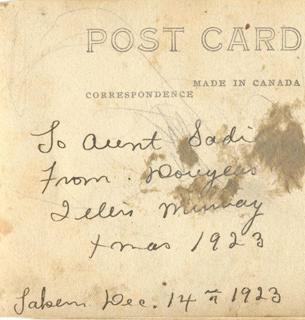 POST CARD
MADE IN CANADA
CORRESPONDENCE
To Aunt Sadi
From Douglas
Murray
Xmas 1923
Taken Dec. 14th 1923